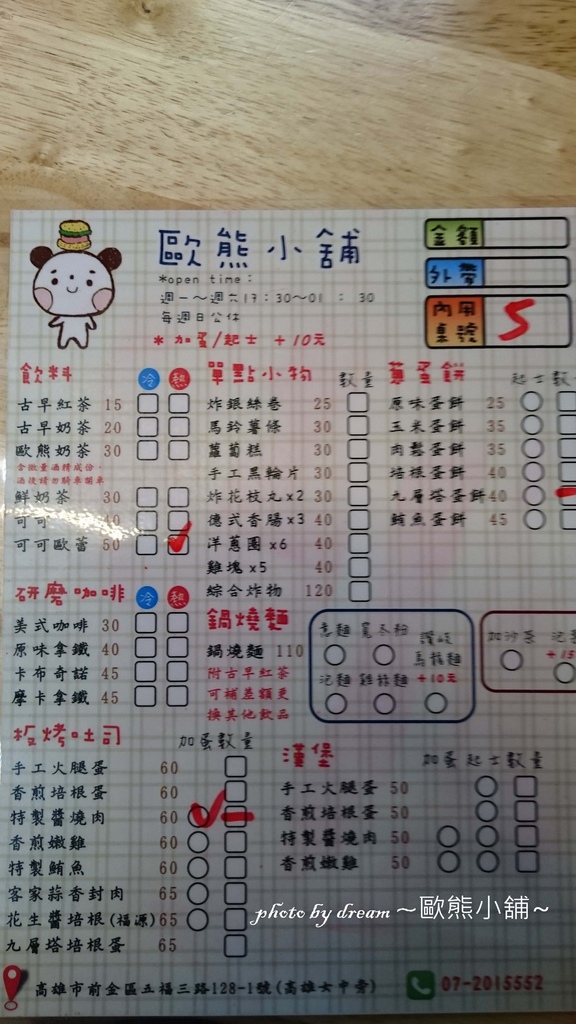 歐熊小舖
*open time：
週一～週六17：30～01：30
每週日公休
*加蛋/起士 +10元
金額
外帶
內用桌號 5
飲料 冷 熱
古早紅茶 15
古早奶茶 20
歐熊奶茶 30
含微量酒精成份，
酒後請勿騎車開車
鮮奶茶 30
可可 40
可可歐蕾 50
研磨咖啡 冷 熱
美式咖啡 30
原味拿鐵 40
卡布奇諾 45
摩卡拿鐵 45
板烤吐司 加蛋 數量
手工火腿蛋 60
香煎培根蛋 60
特製醬燒肉 60
香煎嫩雞 60
特製鮪魚 60
客家蒜香封肉 65
花生醬培根(福源) 65
九層塔培根蛋 65
單點小物 數量
炸銀絲卷 25
馬鈴薯條 30
蘿蔔糕 30
手工黑輪片 30
炸花枝丸x2 30
德式香腸x3 40
洋蔥圈x6 40
雞塊x5 40
綜合炸物 120
鍋燒麵
鍋燒麵 110
附古早紅茶
可補差額更
換其他飲品
意麵 寬冬粉 讚岐烏龍麵 +10元
泡麵 雞絲麵
加沙茶
+15
蔥蛋餅 起士
原味蛋餅 25
玉米蛋餅 35
肉鬆蛋餅 35
培根蛋餅 40
九層塔蛋餅 40
鮪魚蛋餅 45
漢堡 加蛋 起士 數量
手工火腿蛋 50
香煎培根蛋 50
特製醬燒肉 50
香煎嫩雞 50
photo by dream ～歐熊小舖~
高雄市前金區五福三路128-1號(高雄女中旁)
07-2015552